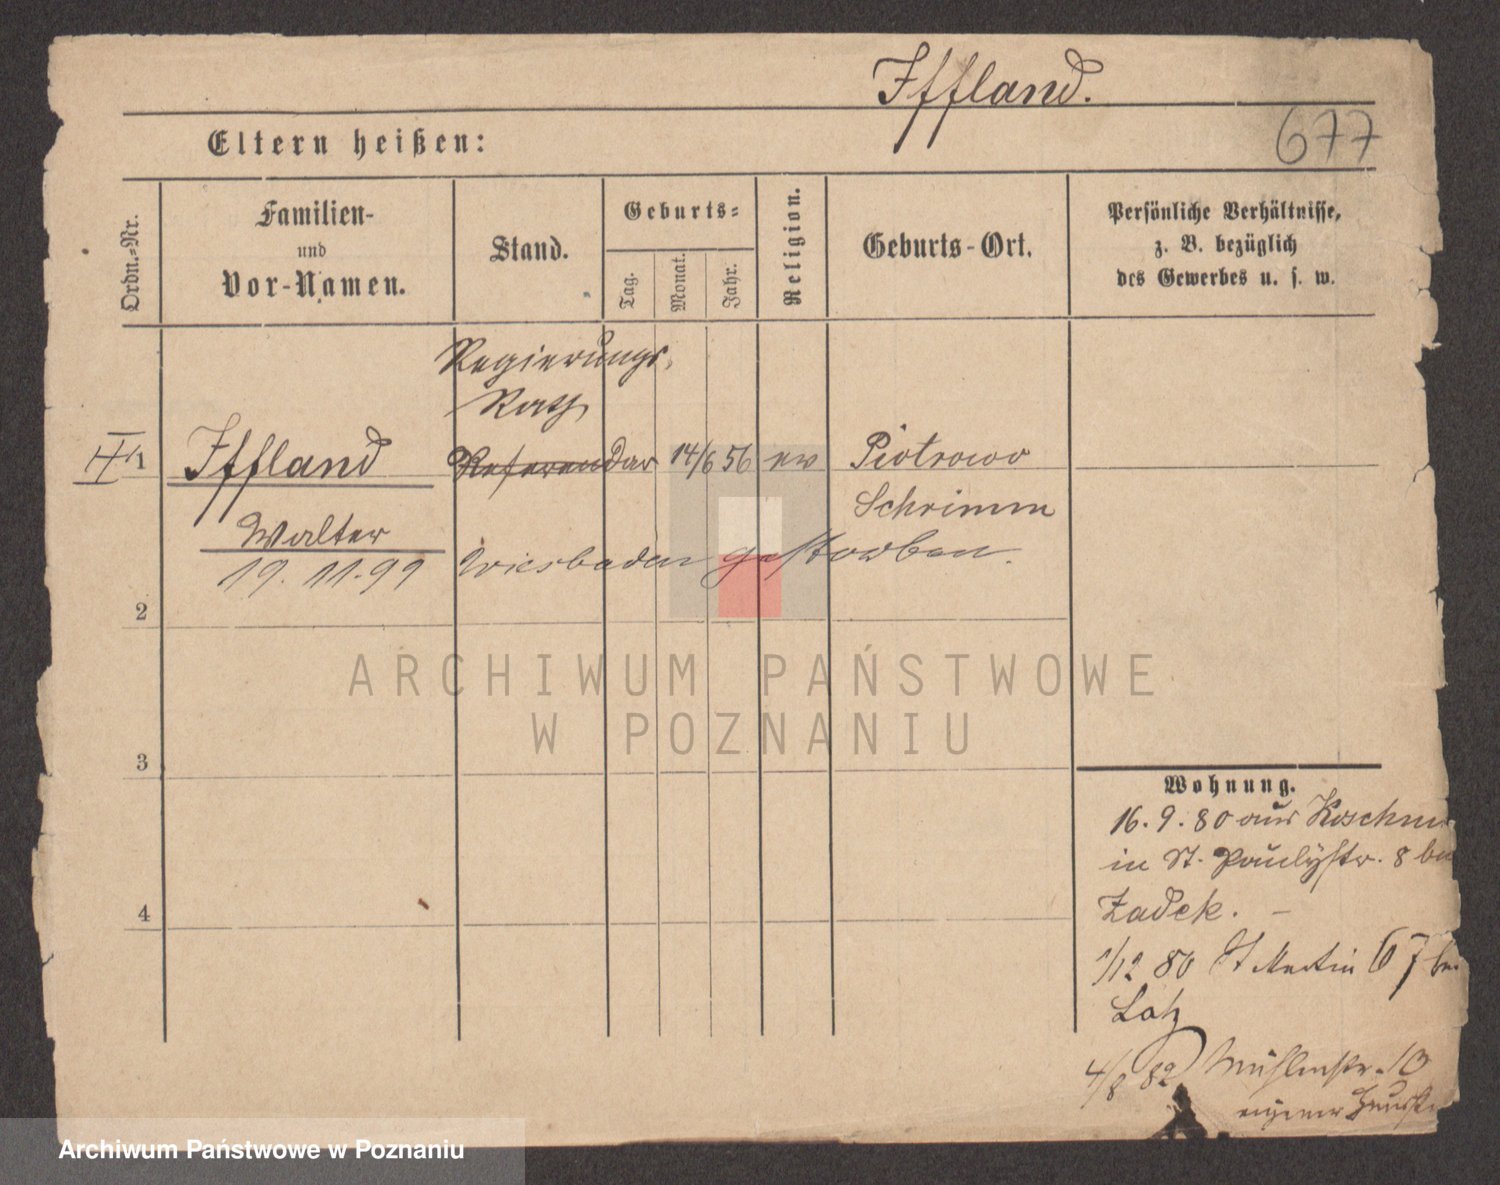 Iffland.
677
Eltern heißen:
Ordn.-Nr.
Familien-
und
Vor-Namen.
Stand.
Geburts-
Tag.
Monat.
Jahr.
Religion.
Geburts-Ort.
Persönliche Verhältnisse,
z. B. bezüglich
des Gewerbes u. s. w.
Regierungs-
Rath
1 Iffland Referendar 14/6 56 ev Piotrowo
Schrimm
Walter
19. 11. 99 Wiesbaden gestorben.
2
ARCHIWUM PAŃSTWOWE
W POZNANIU
3
4
Wohnung.
16. 9. 80 aus Koschm
in St. Paulystr. 8 bei
Zadek. –
1/12 80 St Martin 67 bei
Latz
4/8 82 Mühlenstr. 10
eigener
Archiwum Państwowe w Poznaniu